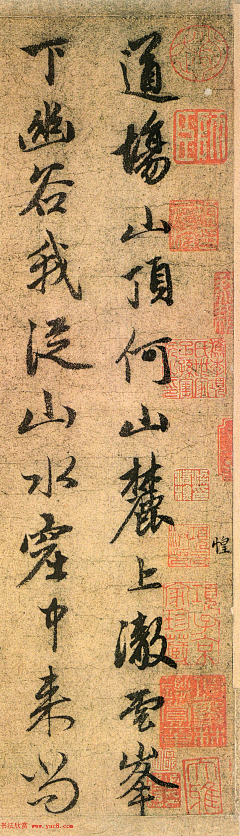 道場山頂何山麓上澈雲峯
下幽谷我從山水窟中來尚
惶
书法欣赏
www.yac8.com